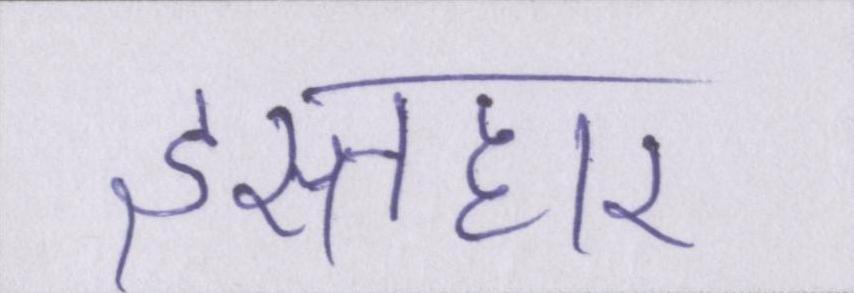 इस्तहार